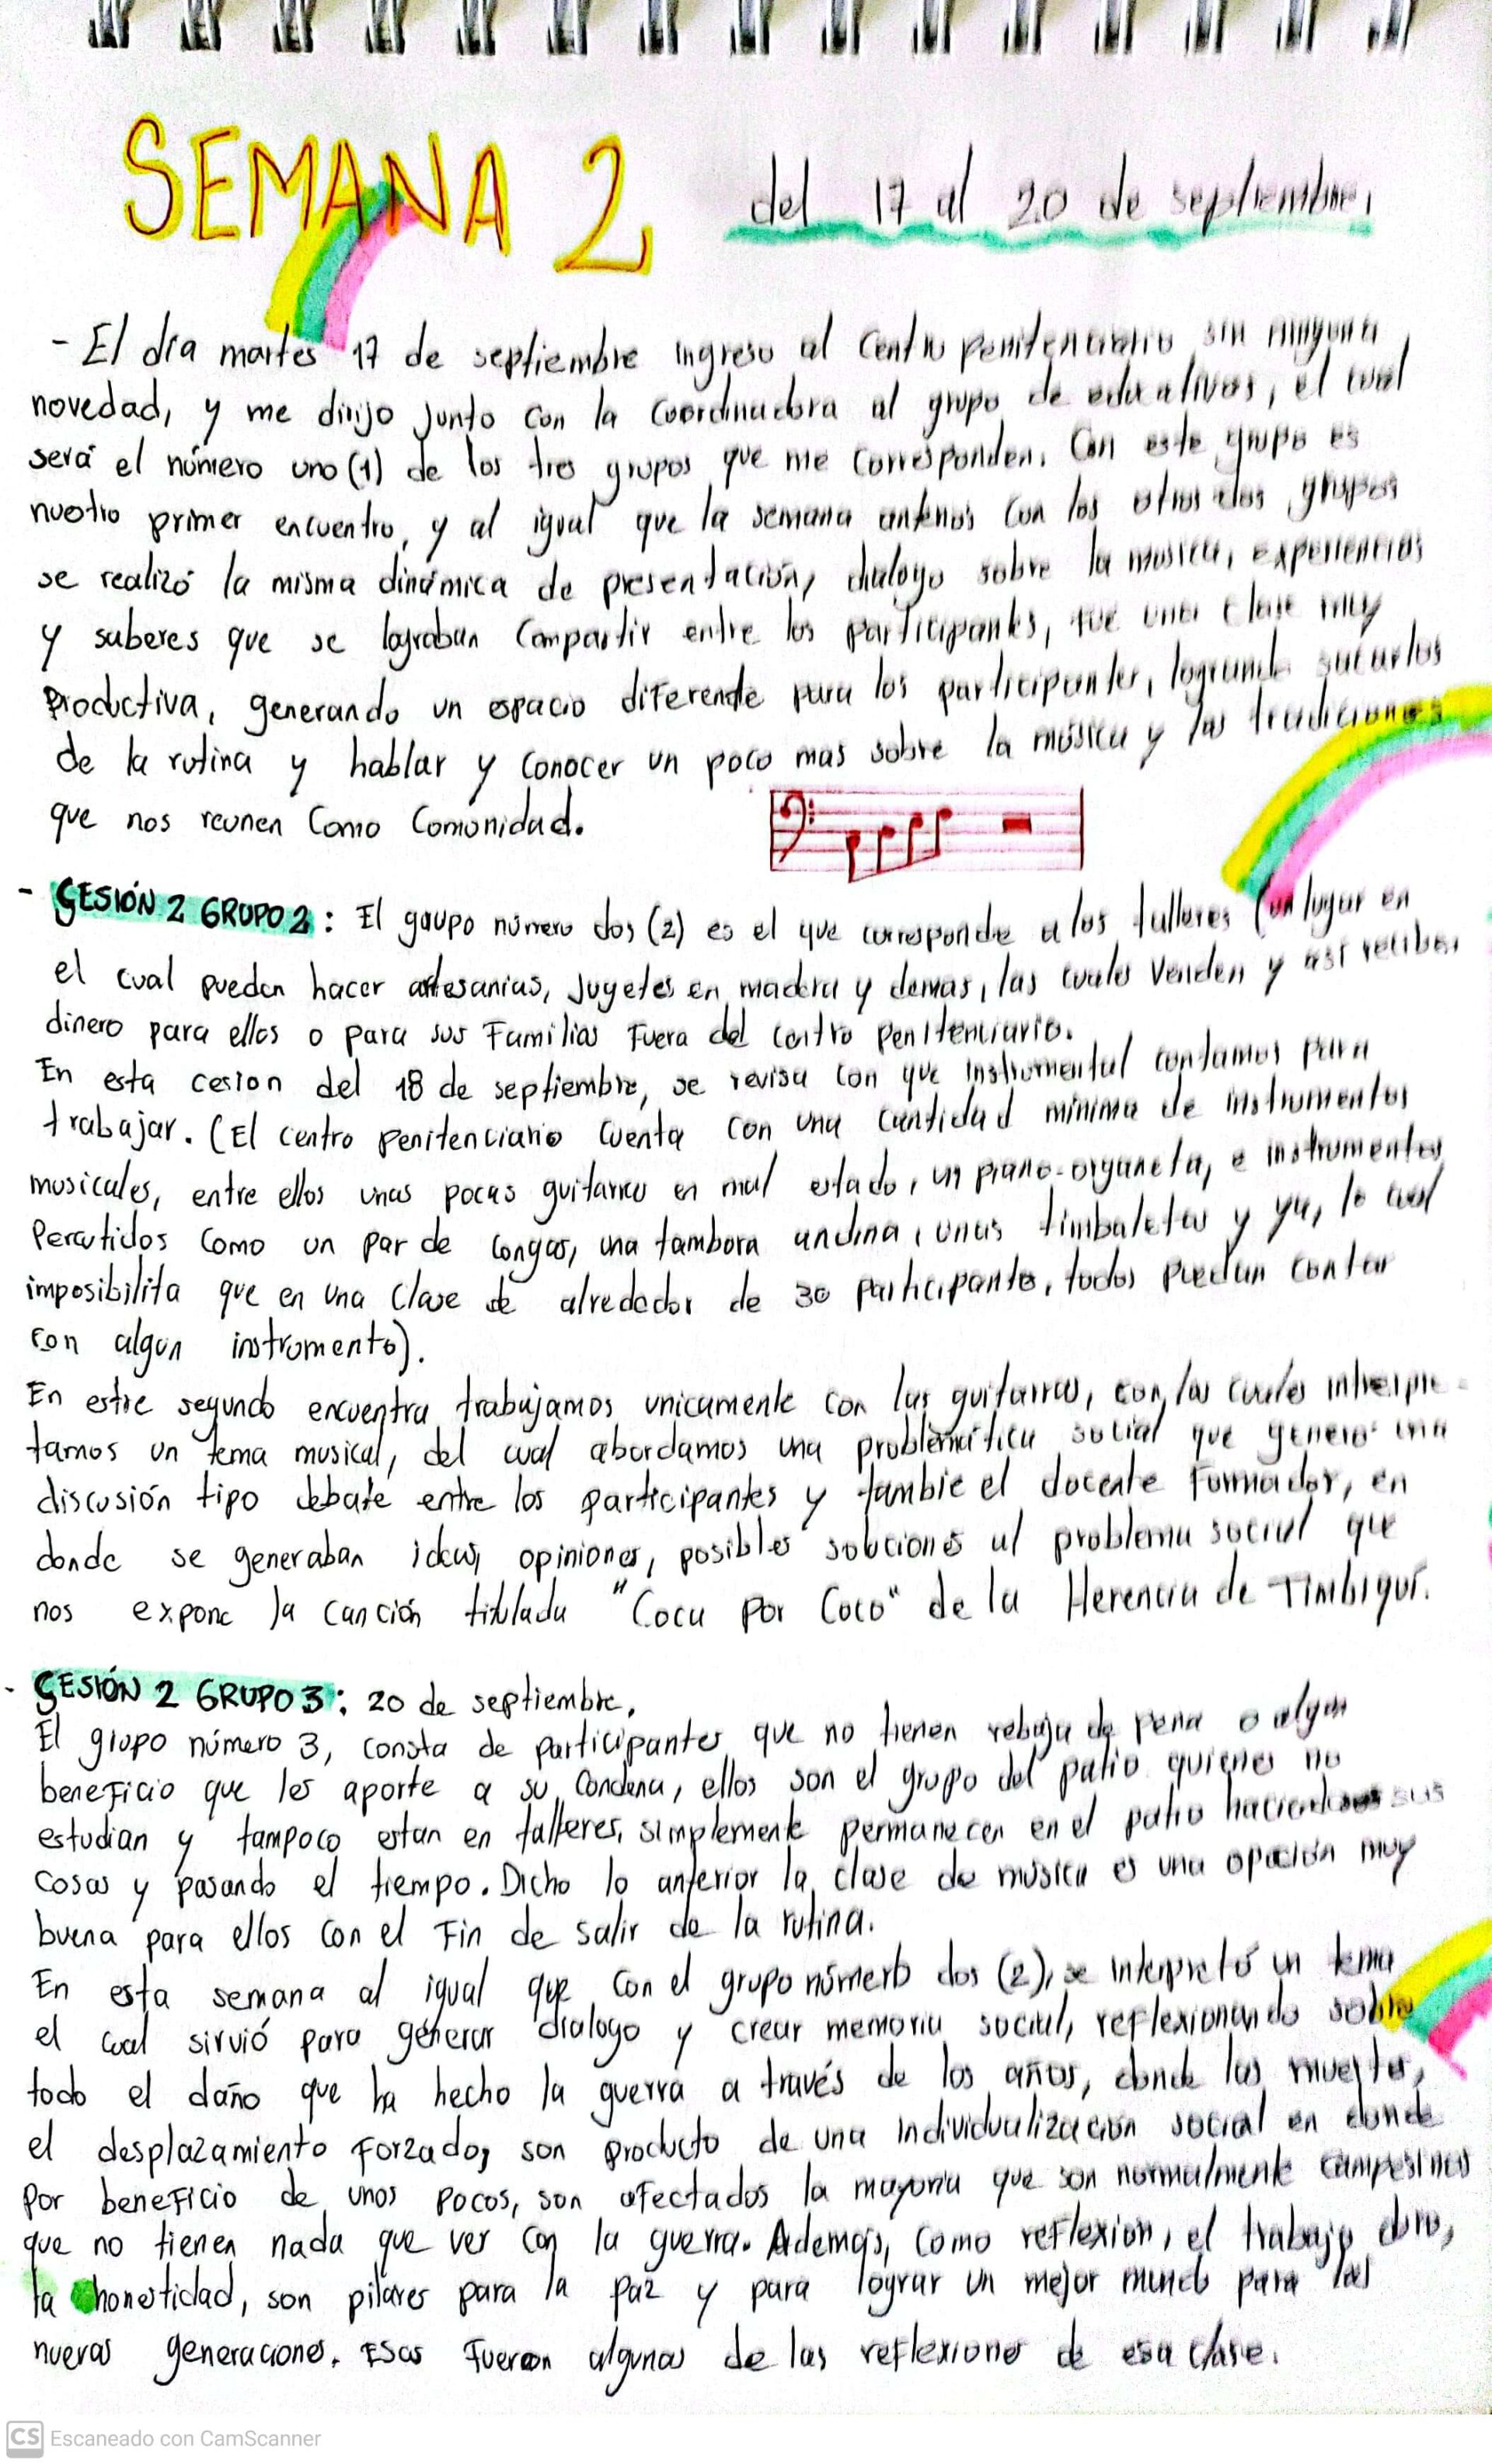 SEMANA 2 del 17 al 20 de septiembre.
- El día martes 17 de septiembre ingreso al centro penitenciario sin ninguna
novedad, y me dirijo junto con la coordinadora al grupo de educativas, el cual
será el número uno (1) de los tres grupos que me corresponden. Con este grupo es
nuestro primer encuentro, y al igual que la semana anterior con los otros dos grupos
se realizó la misma dinámica de presentación, dialogo sobre la musica, experiencias
y saberes que se lograban compartir entre los participantes, fue una clase muy
productiva, generando un espacio diferende para los participantes, logrando sacarlos
de la rutina y hablar y conocer un poco mas sobre la música y las tradiciones
que nos reunen como comunidad.
- SESIÓN 2 GRUPO 2: El gaupo número dos (2) es el que corresponde a los talleres (un lugar en
el cual pueden hacer artesanias, jugetes en madera y demas, las cuales venden y así reciben
dinero para ellos o para sus familias fuera del centro penitenciario.
En esta cesion del 18 de septiembre, se revisa con que instrumental contamos para
trabajar. (El centro penitenciario cuenta con una cantidad mínima de instrumentos
musicales, entre ellos unas pocas guitarras en mal estado, un piano-organeta, e instrumentos
percutidos como un par de congas, una tambora andina, unas timbaletas y ya, lo cual
imposibilita que en una clase de alrededor de 30 participantes, todos puedan contar
con algun instrumento).
En estre segundo encuentra trabajamos unicamente con las guitarras, con las cuales interpre-
tamos un tema musical, del cual abordamos una problemática social que generó una
discusión tipo debate entre los participantes y tambie el docente formador, en
donde se generaban ideas, opiniones, posibles soluciones al problema social que
nos expone la canción titulada "Coca por Coco" de la Herencia de Timbiquí.
- SESIÓN 2 GRUPO 3: 20 de septiembre.
El grupo número 3, consta de participantes que no tienen rebaja de pena o algun
beneficio que les aporte a su condena, ellos son el grupo del patio quienes no
estudian y tampoco estan en talleres, simplemente permanecen en el patio haciendo sus
cosas y pasando el tiempo. Dicho lo anterior la clase de música es una opción muy
buena para ellos con el fin de salir de la rutina.
En esta semana al igual que con el grupo número dos (2), se interpretó un tema
el cual sirvió para generar dialogo y crear memoria social, reflexionando sobre
todo el daño que ha hecho la guerra a través de los años, donde las muertes,
el desplazamiento forzado, son producto de una individualización social en donde
por beneficio de unos pocos, son afectados la mayoria que son normalmente campesinos
que no tienen nada que ver con la guerra. Además, como reflexion, el trabajo duro,
la honestidad, son pilares para la paz y para lograr un mejor mundo para las
nuevas generaciones. Esas fueron algunas de las reflexiones de esa clase.
CS Escaneado con CamScanner